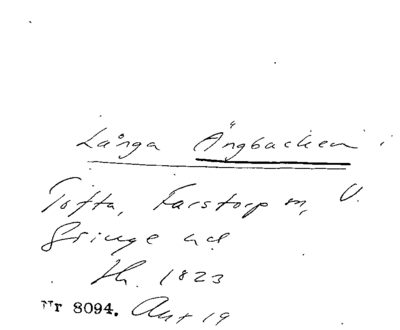 Långa Ängbacken i
Tofta, Farstorp m, V.
Gringe hd
Sh. 1823
Nr 8094. Akt 19